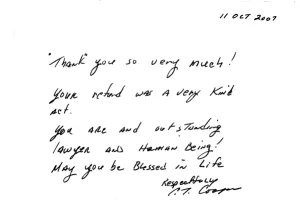 11 OCT 2007
"Thank" you so very much!
Your refund was a very Kind
act.
You are and outstanding
lawyer and Human Being!
May you be Blessed in Life
Respectfully
C.T. Cooper